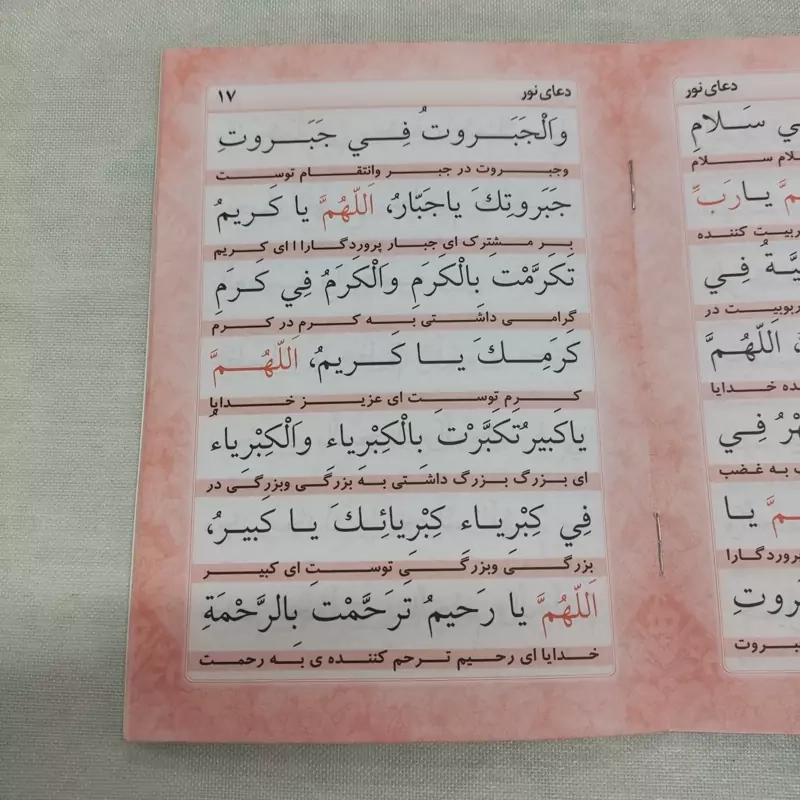 دعای نور
وَالْجَبَروتُ فِي جَبَروتِ
وجبروت در جبر وانتقام توست
جَبَروتِكَ ياجَبّارُ، اَللّهُمَّ يا كَريمُ
بر مشترک ای جبار پروردگارا ای کریم
تَكَرَّمْت بِالْكَرَمِ وَالْكَرَمُ فِي كَرَمِ
گرامی داشتی به کرم در کرم
كَرَمِكَ يا كَريمُ، اَللّهُمَّ
کرم توست ای عزیز خدایا
ياكَبيرُتَكَبَّرْت بِالْكِبْرِياء وَالْكِبْرِياءُ
ای بزرگ بزرگ داشتی به بزرگی وبزرگی در
فِي كِبْرِياء كِبْرِيائِكَ يا كَبيرُ،
بزرگی وبزرگی توست ای کبیر
اَللّهُمَّ يا رَحيمُ تَرَحَّمْت بِالرَّحْمَةِ
خدایا ای رحیم ترحم کننده ی به رحمت
۱۷
دعای نور
ي سَلامِ
سلام سلام
يارَبِّ
ربیت کننده
فِي
ربوبیت در
اَللّهُمَّ
ده خدایا
فِي
به غضب
يا
پروردگارا
بروت